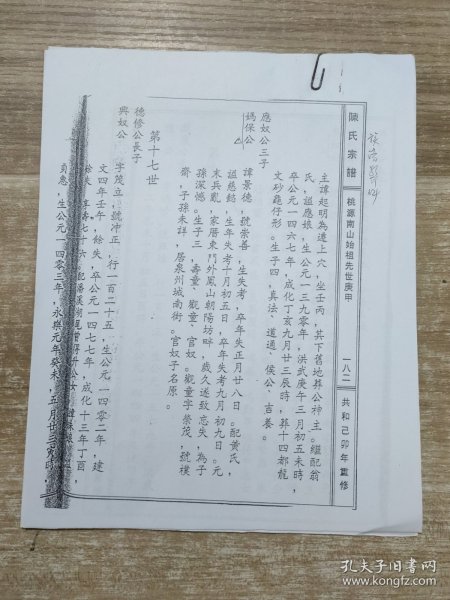 陳氏宗譜
桃源南山始祖先世庚甲
一八二
共和己卯年重修
主諱起明為邊上穴，坐壬丙，其下舊地葬公神主。繼配翁
氏，謚應娘，生公元一三九〇年，洪武庚午三月初五未時，
卒公元一四六七年，成化丁亥九月廿三辰時，葬十四都龍
文砂龜仔形。生子四，真法、道通、侯公、吉養。
應奴公三子
媽保公
諱景德，號崇善，生失考，卒年失正月廿八日。配黃氏，
謚慈懿，生年失考十月初五日，卒年失考九月初九日。元
末兵亂，家厝東門外鳳山朝陽坊畔，歲久遂致忘失，為子
孫深憾。生子三，壽童、觀童、官奴。觀童字榮茂，號樸
齋，子孫未詳，居泉州城南街。官奴子名原。
第十七世
德修公長子
興奴公
字茂立，號沖正，行一百二十五，生公元一四〇二年，建
文四年壬午，餘失，卒公元一四七七年，成化十三年丁酉，
餘失，享壽七十六。配
貞惠，生公元一四〇三年，永樂元年癸未，五月廿三寅時，
孔夫子旧书网
www.kongfz.com